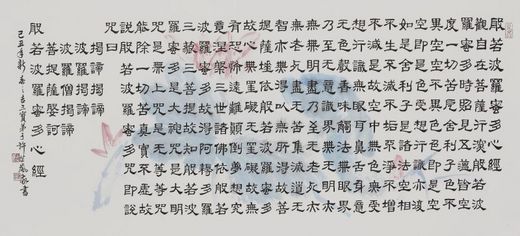 般若波羅蜜多心經
觀自在菩薩行深般若波
羅蜜多時照見五蘊皆空
度一切苦厄舍利子色不
異空空不異色色即是空
空即是色受想行識亦復
如是舍利子是諸法空相
不生不滅不垢不淨不增
不減是故空中無色無受
想行識無眼耳鼻舌身意
無色聲香味觸法無眼界
乃至無意識界無無明亦
無無明盡乃至無老死亦
無老死盡無苦集滅道無
智亦無得以無所得故菩
提薩埵依般若波羅蜜多
故心無罣礙無罣礙故無
有恐怖遠離顛倒夢想究
竟涅槃三世諸佛依般若
波羅蜜多故得阿耨多羅
三藐三菩提故知般若波
羅蜜多是大神咒是大明
咒是無上咒是無等等咒
能除一切苦真實不虛故
說般若波羅蜜多咒即說
咒曰
揭諦揭諦
波羅揭諦
波羅僧揭諦
菩提薩婆訶
般若波羅蜜多心經